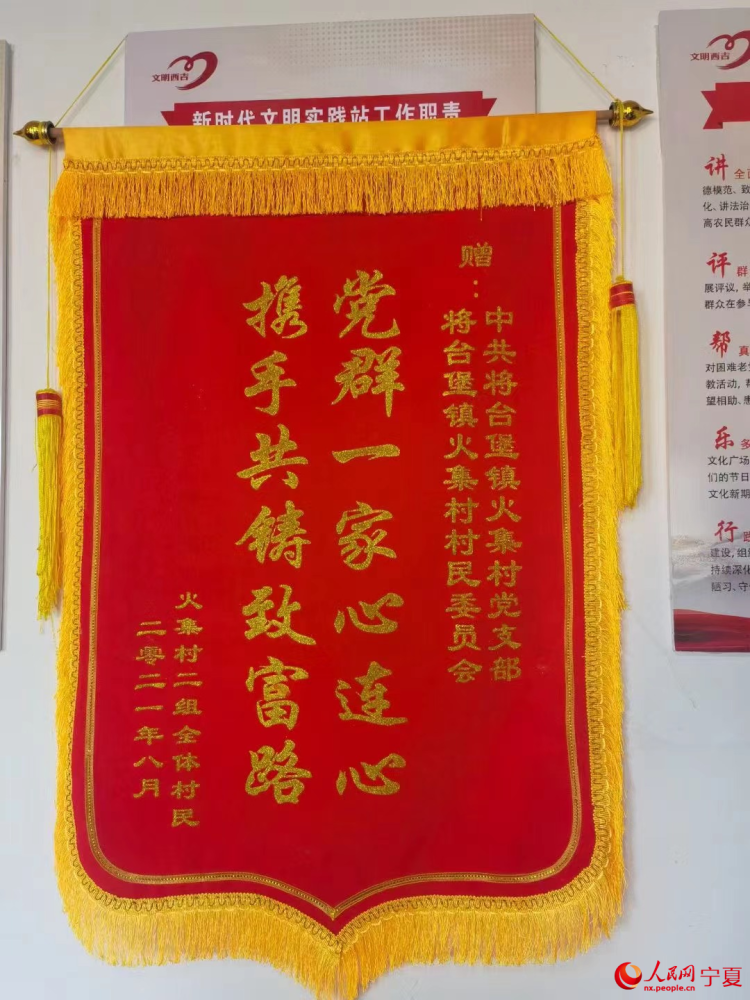 文明西吉
新时代文明实践站工作职责
赠：
中共将台堡镇火集村党支部
将台堡镇火集村村民委员会
党群一家心连心
携手共铸致富路
火集村二组全体村民
二零二一年八月
文明西吉
讲
德模范、致
化、讲法治
高农民群众
评 群
展评议，举
群众在参与
帮 真
对困难老
教活动，帮
望相助、患
乐 多
文化广场
们的节日
文化新期
行 践
建设，组
持续深化
陋习、守
人民网 宁夏
nx.people.cn